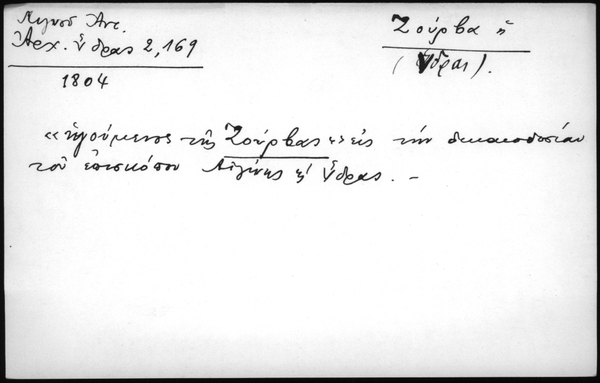 Λιγνοῦ Ἀντ.
Ἀρχ. Ὕδρας 2, 169
1804
Ζούρβα ἡ
(Ὕδρας).
«ἡγούμενος τῆς Ζούρβας» εἰς τὴν δικαιοδοσίαν
τοῦ ἐπισκόπου Αἰγίνης κ' Ὕδρας. –